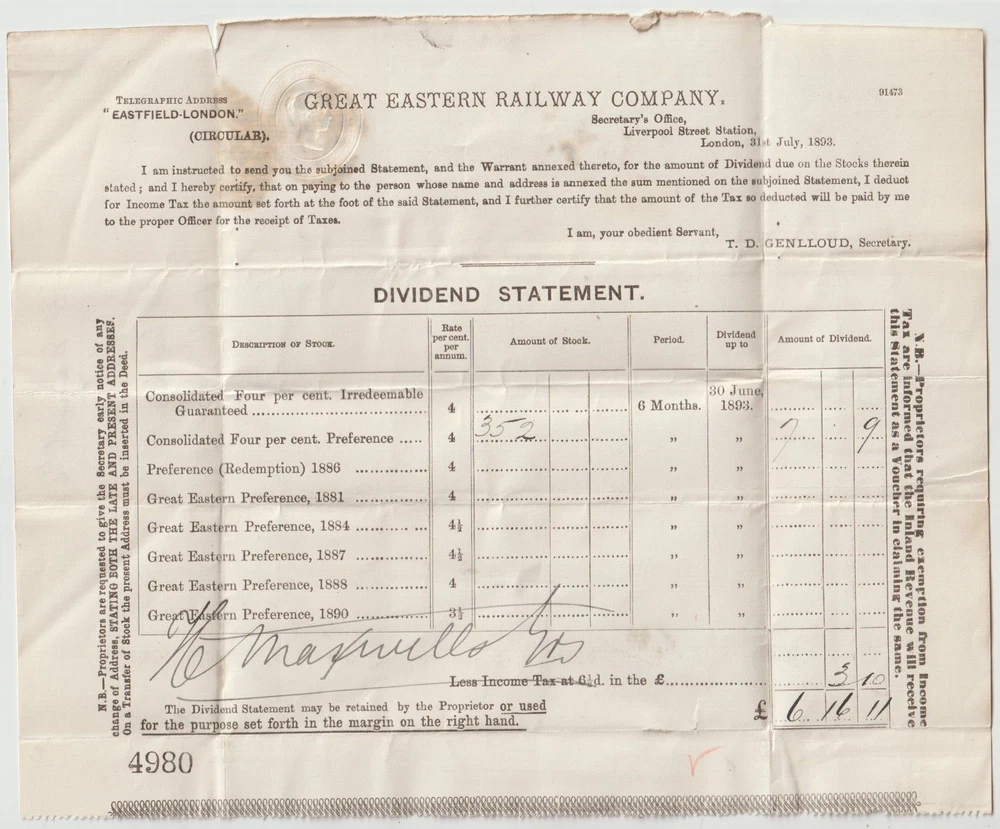 TELEGRAPHIC ADDRESS
"EASTFIELD-LONDON."
(CIRCULAR).
GREAT EASTERN RAILWAY COMPANY.
91473
Secretary's Office,
Liverpool Street Station,
London, 31st July, 1893.
I am instructed to send you the subjoined Statement, and the Warrant annexed thereto, for the amount of Dividend due on the Stocks therein
stated; and I hereby certify, that on paying to the person whose name and address is annexed the sum mentioned on the subjoined Statement, I deduct
for Income Tax the amount set forth at the foot of the said Statement, and I further certify that the amount of the Tax so deducted will be paid by me
to the proper Officer for the receipt of Taxes.
I am, your obedient Servant,
T. D. GENLLOUD, Secretary.
DIVIDEND STATEMENT.
N.B.—Proprietors are requested to give the Secretary early notice of any
change of Address, STATING BOTH THE LATE AND PRESENT ADDRESSES.
On a Transfer of Stock the present Address must be inserted in the Deed.
DESCRIPTION OF STOCK. Rate per cent. per annum. Amount of Stock. Period. Dividend up to Amount of Dividend.
Consolidated Four per cent. Irredeemable
Guaranteed 4 6 Months. 30 June, 1893.
Consolidated Four per cent. Preference 4 352 „ „ 7 9
Preference (Redemption) 1886 4 „ „
Great Eastern Preference, 1881 4 „ „
Great Eastern Preference, 1884 4½ „ „
Great Eastern Preference, 1887 4½ „ „
Great Eastern Preference, 1888 4 „ „
Great Eastern Preference, 1890 3½ „ „
Maxwell
Less Income Tax at 6½d. in the £ 3 10
£ 6 16 11
The Dividend Statement may be retained by the Proprietor or used
for the purpose set forth in the margin on the right hand.
4980
N.B.—Proprietors requiring exemption from Income
Tax are informed that the Inland Revenue will receive
this Statement as a Voucher in claiming the same.